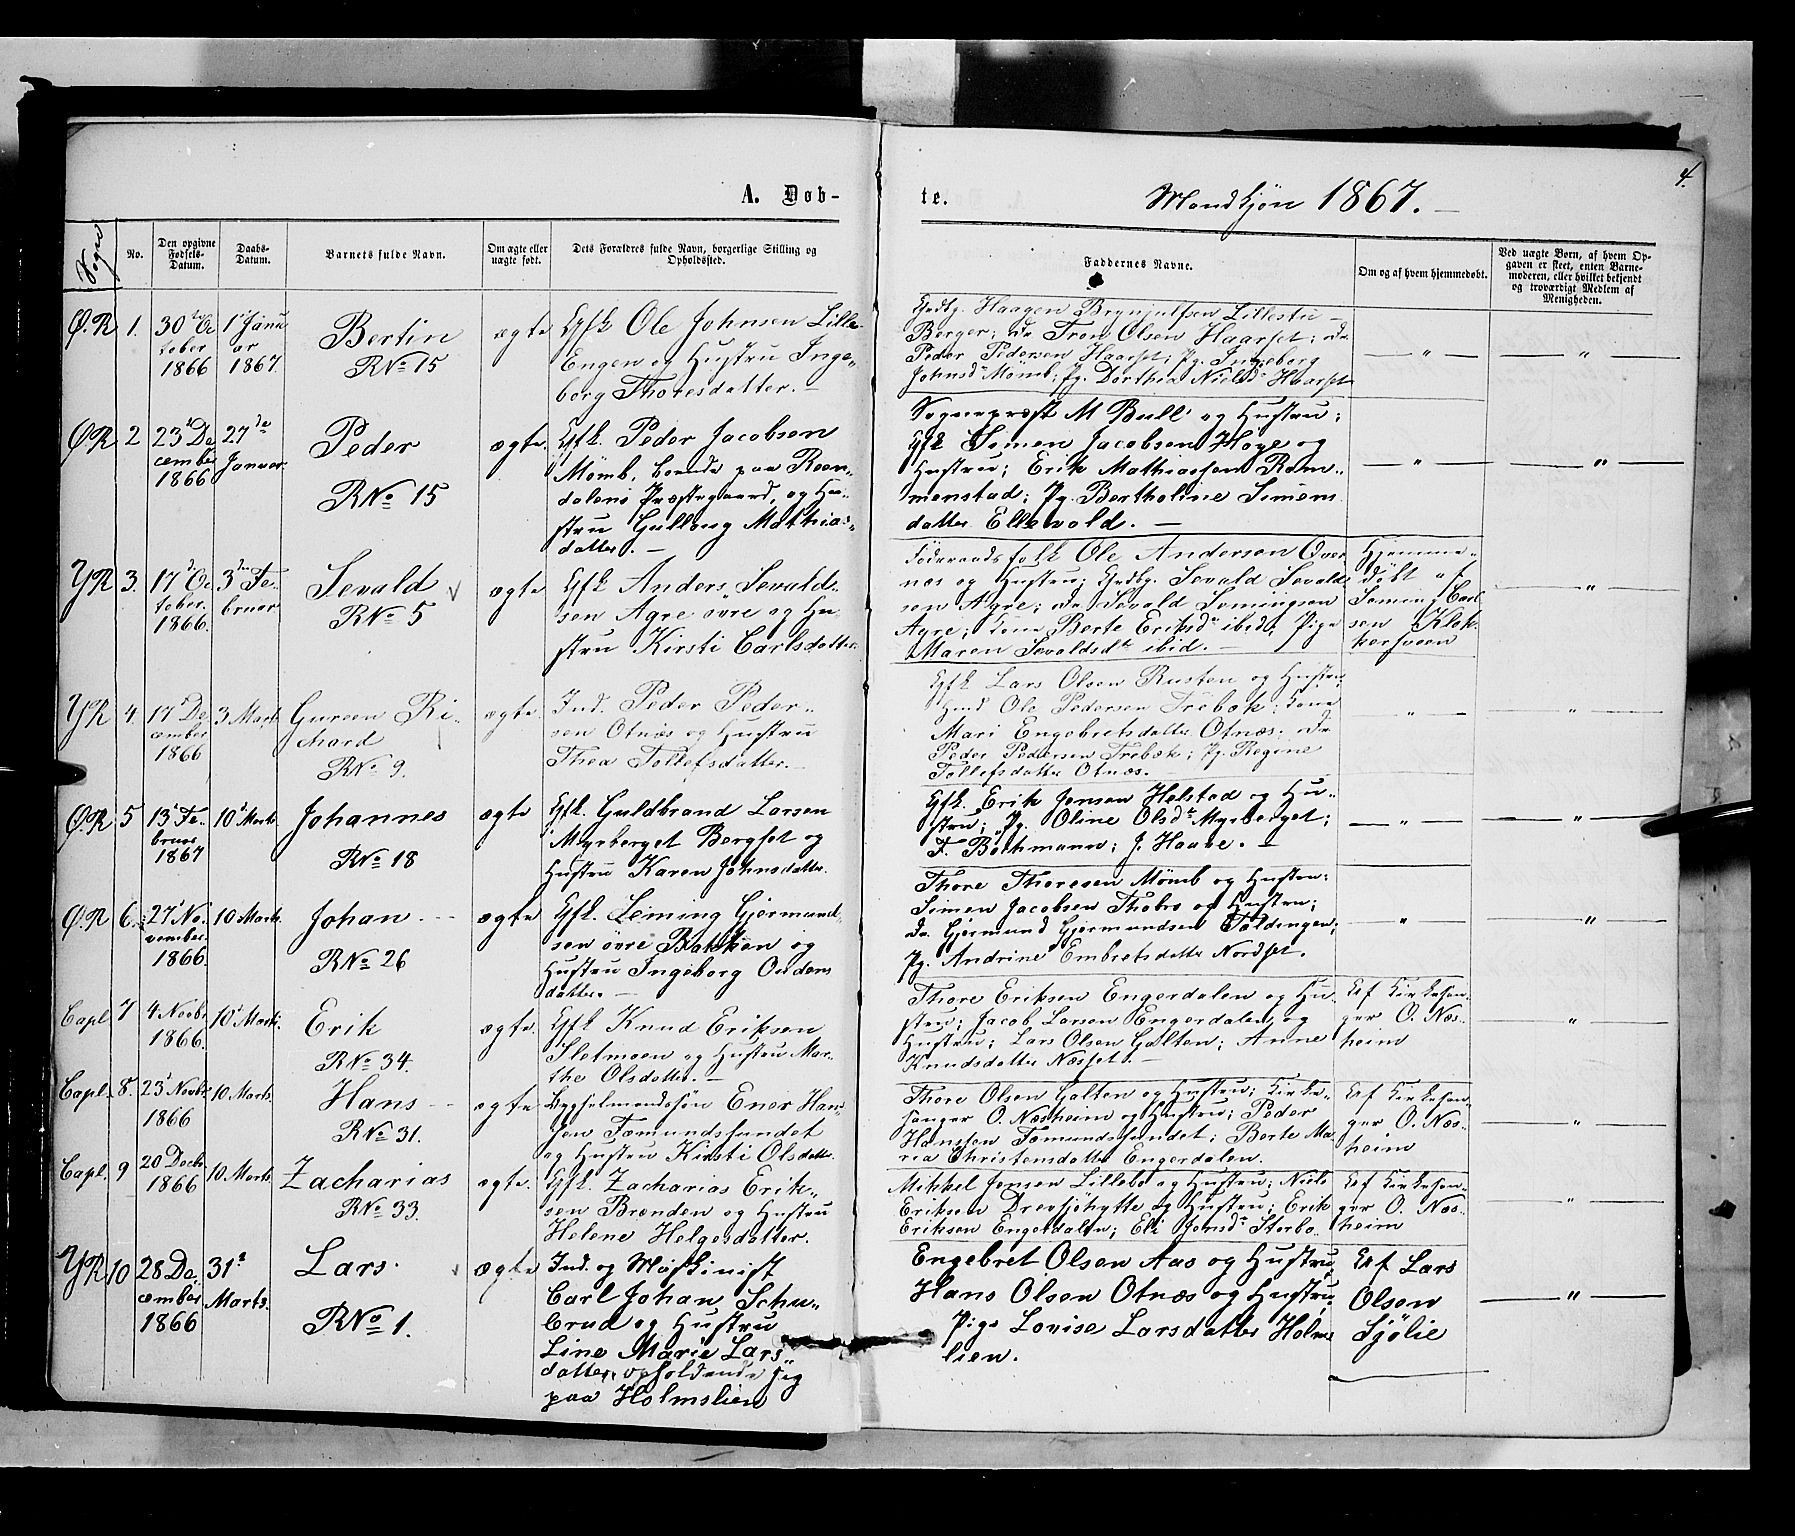 A. Døb-
te. Mandkjøn 1867.
4.
Sogn
No.
Den opgivne Fødsels-Datum.
Daabs-Datum.
Barnets fulde Navn.
Om ægte eller uægte født.
Dets Forældres fulde Navn, borgerlige Stilling og Opholdssted.
Faddernes Navne.
Om og af hvem hjemmedøbt.
Ved uægte Børn, af hvem Opgaven er skeet, enten Barnemoderen, eller hvilket bekjendt og troværdigt Medlem af Menigheden.
Ø.R 1. 30te Oc
tober
1866
1ste Janu
ar
1867.
Bertin
RNo 15
ægte
Gfk Ole Johnsen Lille
Engen og Hustru Inge-
borg Thoresdatter. —
Grdbg. Haagen Brynjulfsen Lillestu-
Berger; do Tron Olsen Haarset; do
Peder Pedersen Haarset; Pg. Ingeborg
Johnsdr Momb; Pg. Dorthea Nielsdr Haarset
— " —
— " —
Ø.R 2 23de De
cember
1866
27de
Januar.
Peder
RNo 15
ægte.
Gfk. Peder Jacobsen
Mömb, boende paa Reen-
dalens Præstegaard, og Hu-
stru Gullaug Mathias-
datter. —
Sogneprest M Bull og Hustru;
Gfk Simen Jacobsen Höye og
Hustru; Erik Mathiassen Rom-
menstad; Pg. Bertholine Simens
datter Ellevold. —
— " —
— " —
YR 3. 17de Oc
tober.
1866.
3die Fe-
bruar
Sevald
RNo 5
ægte
Gfk. Anders Sevald-
sen Agre øvre og Hu
stru Kirsti Carlsdatter
Föderaadsfolk Ole Andersen Over
næs og Hustru; Grdbg. Sevald Sevald
sen Agre; do Sevald Semingsen
Agre; Kone Berte Eriksdr ibid; Pige
Maren Sevaldsdr ibid. —
Hjemme-
døbt af
Simen Carl
sen Klok-
kersveen
"
YR 4. 17de De
cember
1866
3 Marts
Gureen Ri-
chard
RNo 9.
ægte.
Ind. Peder Peder-
sen Otnæs og Hustru
Thea Tollefsdatter. —
Gfk Lars Olsen Rusten og Hustru;
Hmd Ole Pedersen Trebæk; Kone
Mari Engebretsdatter Otnæs; do
Peder Pedersen Trebæk; Pg. Regine
Tollefsdatter Otnæs.
"
"
Ø.R 5 13de Fe-
bruar
1867
10de Marts
Johannes
RNo 18
ægte
Gfk. Guldbrand Larsen
Myrberget Bergset og
Hustru Karen Johnsdatter.
Gfk. Erik Jensen Helstad og Hu-
stru; Pg. Oline Olsdr Myrberget;
F. Bothmann; J. Haave. —
— " —
— " —
Ø.R 6. 27de No-
vember.
1866.
10 Marts
Johan
RNo 26
ægte
Gfk. Seming Gjermund-
sen øvre Bakken og
Hustru Ingeborg Oudens
datter. —
Thore Thoresen Mömb og Hustru;
Simen Jacobsen Thobro og Hustru;
do Gjermund Gjermundsen Foldingen;
Pg. Andrine Embretsdatter Nordset.
"
"
Capl 7 4 Novbr
1866.
10de Marts.
Erik
RNo 34.
ægte.
Gfk Knud Eriksen
Sletmoen og Hustru Mar-
the Olsdatter. —
Thore Eriksen Engerdalen og Hu-
stru; Jacob Larsen Engerdalen og
Hustru; Lars Olsen Galten; Anne
Knudsdatter Næsset. —
Af Kirkesan-
ger O. Næs-
heim
"
Capl. 8. 23de Novbr.
1866
10 Marts.
Hans
RNo 31.
ægte
Bygselmandssön Ener Han-
sen Fæmundssundet
og Hustru Kirsti Olsdatter.
Thore Olsen Galten og Hustru; Kirke-
sanger O. Næsheim og Hustru; Peder
Hanssen Fæmundssundet; Berte Ma
ria Christensdatter Engerdalen.
Af Kirkesan-
ger O. Næs-
heim
"
Capl. 9 20 Decbr.
1866
10 Marts.
Zacharias
RNo 33.
ægte.
Gfk. Zacharias Erik-
sen Brænden og Hustru
Helene Helgesdatter.
Mikkel Jensen Lillebo og Hustru; Niels
Eriksen Drevsjöhytte og Hustru; Erik
Eriksen Engerdalen; Eli Jonsdr Storbo.
Af Kirkesan-
ger O. Næs-
heim
"
YR 10 28 De-
cember
1866
31te
Marts.
Lars.
RNo 1.
ægte
Ind. og Maskinist
Carl Johan Schu-
brud og Hustru
Line Marie Lars-
datter, opholdende sig
paa Holmslien
Engebret Olsen Aas og Hustru;
Hans Olsen Otnæs og Hustru;
Pige Lovise Larsdatter Holms
lien.
Af Lars
Olsen
Sjølie
— " —